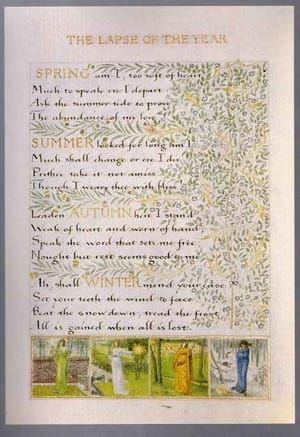 THE LAPSE OF THE YEAR
SPRING am I, too soft of heart
Much to speak ere I depart
Ask the summer tide to prove
The abundance of my love
SUMMER looked for long am I
Much shall change or ere I die
Prithee take it not amiss
Though I weary thee with bliss
Laden AUTUMN here I stand
Weak of heart and worn of hand
Speak the word that sets me free
Nought but rest seems good to me
Ah, shall WINTER mend your case
Set your teeth the wind to face
Beat the snow down, tread the frost
All is gained when all is lost.